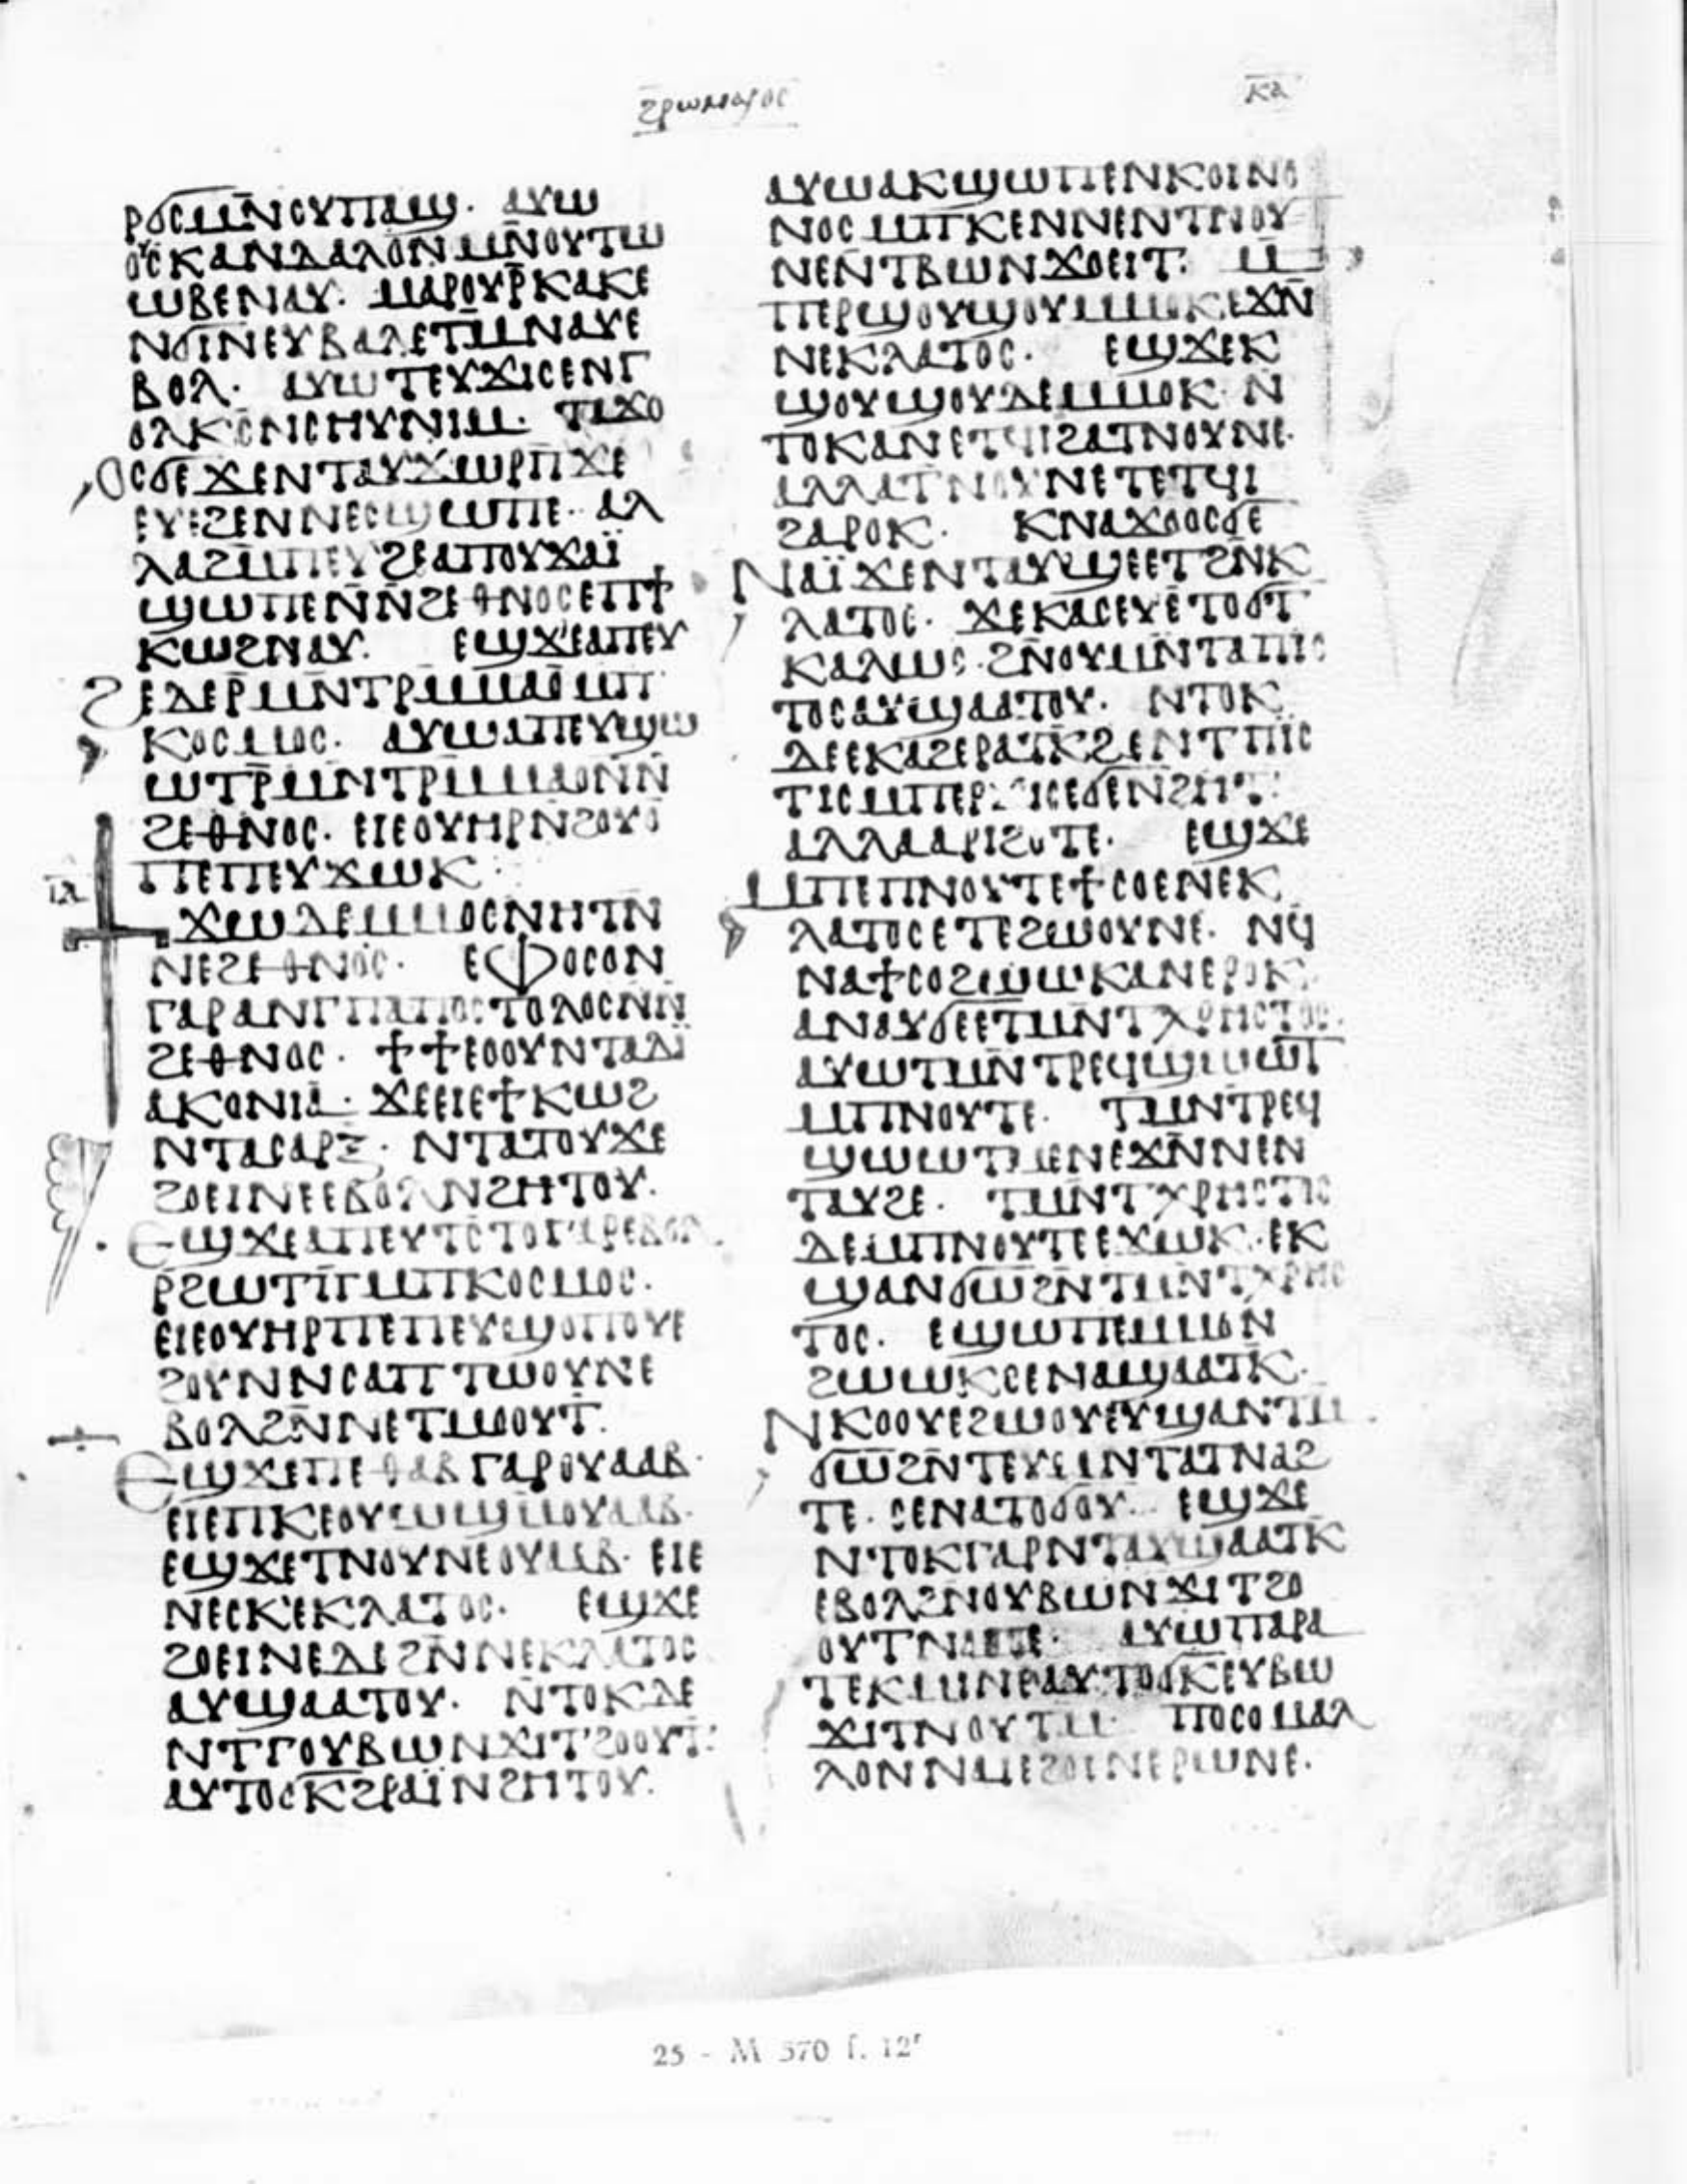 ϩⲣⲱⲙⲁⲓⲟⲥ
ⲕⲁ
ⲣϭⲥⲙⲛ̄ⲟⲩⲡⲁϣ. ⲁⲩⲱ
ⲟⲩⲥⲕⲁⲛⲇⲁⲗⲟⲛⲙⲛ̄ⲟⲩⲧⲱ
ⲱⲃⲉⲛⲁⲩ. ⲙⲁⲣⲟⲩⲣ̄ⲕⲁⲕⲉ
ⲛϭⲓⲛⲉⲩⲃⲁⲗⲉⲧⲙ̄ⲛⲁⲩⲉ
ⲃⲟⲗ. ⲁⲩⲱⲧⲉⲩϫⲓⲥⲉⲛⲅ
ⲟⲗⲕⲥ̄ⲛⲟⲩⲟⲩⲛⲓⲙ. ϯϫⲟ
ⲟⲥϭⲉϫⲉⲛⲧⲁⲩϫⲱⲣⲡ̄ϫⲉ
ⲉⲩⲉϩⲉⲛⲛⲉⲥϣⲱⲡⲉ. ⲁⲗ
ⲗⲁϩⲙ̄ⲡⲉⲩϩⲉⲁⲡⲟⲩϫⲁⲓ̈
ϣⲱⲡⲉⲛ̄ⲛϩⲉⲑⲛⲟⲥⲉⲡϯ
ⲕⲱϩⲛⲁⲩ. ⲉϣϫⲉⲁⲡⲉⲩ
ϩⲉⲇⲉⲣ̄ⲙⲛ̄ⲧⲣⲙ̄ⲙⲁⲟⲙ̄ⲡ
ⲕⲟⲥⲙⲟⲥ. ⲁⲩⲱⲁⲡⲉⲩϣⲱ
ⲱⲧⲣ̄ⲙⲛ̄ⲧⲣⲙ̄ⲙⲁⲟⲛ̄ⲛ̄
ϩⲉⲑⲛⲟⲥ. ⲉⲓⲉⲟⲩⲏⲣⲛ̄ϩⲟⲩⲟ
ⲡⲉⲡⲉⲩϫⲱⲕ:
ⲓⲁ
ϫⲱⲇⲉⲙⲙⲟⲥⲛⲏⲧⲛ̄
ⲛⲉϩⲉⲑⲛⲟⲥ. ⲉⲫⲟⲥⲟⲛ
ⲅⲁⲣⲁⲛⲅⲡⲁⲡⲟⲥⲧⲟⲗⲟⲥⲛ̄ⲛ̄
ϩⲉⲑⲛⲟⲥ. ϯϯⲉⲟⲟⲩⲛⲧⲁⲇⲓ̈
ⲁⲕⲟⲛⲓⲁ. ϫⲉⲉⲓⲉϯⲕⲱϩ
ⲛⲧⲁⲥⲁⲣⲝ. ⲛⲧⲁⲧⲟⲩϫⲉ
ϩⲟⲉⲓⲛⲉⲉⲃⲟⲗⲛϩⲏⲧⲟⲩ.
ⲉϣϫⲉⲁⲡⲉⲩⲧⲥ̄ⲧⲟⲅⲁⲣⲉⲃⲟⲗ
ⲣϩⲱⲧⲡ̄ⲙ̄ⲡⲕⲟⲥⲙⲟⲥ.
ⲉⲓⲉⲟⲩⲏⲣⲡⲉⲡⲉⲩϣⲟⲡⲟⲩⲉ
ϩⲟⲩⲛⲛⲥⲁⲡⲧⲱⲟⲩⲛⲉ
ⲃⲟⲗϩⲛ̄ⲛⲉⲧⲙⲟⲟⲩⲧ.
ⲉϣϫⲉⲡⲉⲑⲁⲃⲅⲁⲣⲟⲩⲁⲁⲃ.
ⲉⲓⲉⲡⲕⲉⲟⲩⲱϣⲙ̄ⲟⲩⲁⲁⲃ.
ⲉϣϫⲉⲧⲛⲟⲩⲛⲉⲟⲩⲁⲁⲃ. ⲉⲓⲉ
ⲛⲉⲥⲕⲉⲕⲗⲁⲧⲟⲥ. ⲉϣϫⲉ
ϩⲟⲉⲓⲛⲉⲇⲉϩⲛ̄ⲛⲉⲕⲗⲁⲧⲟⲥ
ⲁⲩϣⲁⲁⲧⲟⲩ. ⲛ̄ⲧⲟⲕⲇⲉ
ⲛⲧⲅ̄ⲟⲩⲃⲱⲛϫⲓⲧϩⲟⲟⲩⲧ:
ⲁⲩⲧⲟϭⲕ̄ϩⲣⲁⲓ̈ⲛϩⲏⲧⲟⲩ.
ⲁⲩⲱⲁⲕϣⲱⲡⲉⲛⲕⲟⲓⲛⲟ
ⲛⲟⲥⲙ̄ⲡⲕⲉⲛⲛⲉⲛⲧⲛⲟⲩ
ⲛⲉⲛⲧⲃⲱⲛϫⲟⲉⲓⲧ. ⲙ̄
ⲡⲉⲣϣⲟⲩϣⲟⲩⲙⲙⲟⲕⲉϫⲛ̄
ⲛⲉⲕⲗⲁⲧⲟⲥ. ⲉϣϫⲉⲕ
ϣⲟⲩϣⲟⲩⲇⲉⲙⲙⲟⲕ. ⲛ̄
ⲧⲟⲕⲁⲛⲉⲧϥⲓϩⲁⲧⲛⲟⲩⲛⲉ.
ⲁⲗⲗⲁⲧⲛⲟⲩⲛⲉⲧⲉⲧϥⲓ
ϩⲁⲣⲟⲕ. ⲕⲛⲁϫⲟⲟⲥϭⲉ
ⲛⲁⲓ̈ϫⲉⲛⲧⲁⲩϣⲉⲉⲧϩⲛ̄ⲕ
ⲗⲁⲧⲟⲥ. ϫⲉⲕⲁⲥⲉⲩⲉⲧⲟϭⲧ̄
ⲕⲁⲗⲱⲥ. ϩⲛ̄ⲟⲩⲙⲛ̄ⲧⲁⲡⲓⲥ
ⲧⲟⲥⲁⲩϣⲁⲁⲧⲟⲩ. ⲛⲧⲟⲕ
ⲇⲉⲉⲕⲁϩⲉⲣⲁⲧⲕ̄ϩⲉⲛⲧⲡⲓⲥ
ⲧⲓⲥⲙ̄ⲡⲉⲣϫⲓⲥⲉϭⲉⲛ̄ϩⲏⲧ.
ⲁⲗⲗⲁⲁⲣⲓϩⲟⲧⲉ. ⲉϣϫⲉ
ⲙⲡⲉⲡⲛⲟⲩⲧⲉϯⲥⲟⲉⲛⲉⲕ
ⲗⲁⲧⲟⲥⲉⲧⲉϩⲱⲟⲩⲛⲉ. ⲛϥ
ⲛⲁϯⲥⲟϩⲱⲱⲕⲁⲛⲉⲣⲟⲕ.
ⲁⲛⲁⲩϭⲉⲉⲧⲙⲛ̄ⲧⲭⲣⲏⲥⲧⲟⲥ.
ⲁⲩⲱⲧⲙⲛ̄ⲧⲣⲉϥϣⲱⲱⲧ
ⲙ̄ⲡⲛⲟⲩⲧⲉ. ⲧⲙⲛ̄ⲧⲣⲉϥ
ϣⲱⲱⲧⲙⲉⲛⲉϫⲛ̄ⲛⲉⲛ
ⲧⲁⲩϩⲉ. ⲧⲙⲛ̄ⲧⲭⲣⲏⲥⲧⲟⲥ
ⲇⲉⲙ̄ⲡⲛⲟⲩⲧⲉⲉϫⲱⲕ. ⲉⲕ
ϣⲁⲛϭⲱϩⲛ̄ⲧⲙⲛ̄ⲧⲭⲣⲏⲥ
ⲧⲟⲥ. ⲉϣⲱⲡⲉⲙⲙⲟⲛ
ϩⲱⲱⲕⲥⲉⲛⲁϣⲁⲁⲧⲕ̄.
ⲛⲕⲟⲟⲩⲉϩⲱⲟⲩⲉⲩϣⲁⲛⲧⲙ̄
ϭⲱϩⲛ̄ⲧⲉⲩⲙⲛ̄ⲧⲁⲧⲛⲁϩ
ⲧⲉ. ⲥⲉⲛⲁⲧⲟϭⲟⲩ. ⲉϣϫⲉ
ⲛⲧⲟⲕⲅⲁⲣⲛⲧⲁⲩϣⲁⲁⲧⲕ̄
ⲉⲃⲟⲗϩⲛ̄ⲟⲩⲃⲱⲛϫⲓⲧϩⲟ
ⲁⲩⲱⲡⲁⲣⲁ
ⲧⲉⲕⲙⲓⲛⲉⲁⲩⲧⲟϭⲕ̄ⲉⲩⲃⲱ
ϫⲓⲧⲛⲟⲩⲧⲙ̄ ⲡⲟⲥⲟⲙⲁⲗ
ⲗⲟⲛⲛⲁⲙⲉϩⲟⲓⲛⲉⲣⲱⲛⲉ.
25 - M 570 f. 12r